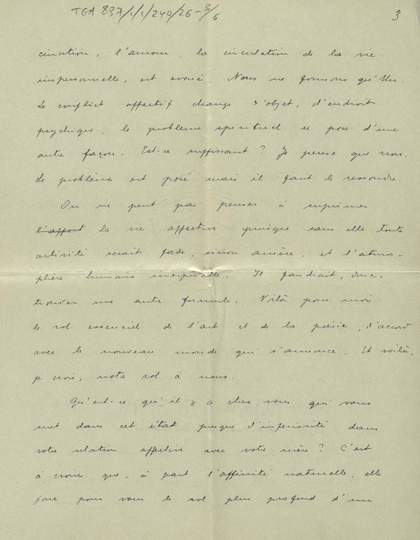 TGA 897/1/1/240/26-3/6
3
cination, l'amour, la circulation de la vie
impersonnelle, est avorté. Nous ne formons qu'Un.
Le conflict affectif change d'objet, d'endroit
psychique, le problème spirituel se pose d'une
autre façon. Est-ce suffisant? Je pense que non.
Le problème est posé mais il faut le ressondre.
On ne peut pas penser à suprimer
la vie affective puisque sans elle toute
activité serait fade, sinon amère, et l'atmos-
phère humaine irrespirable. Il faudrait, donc,
trouver une autre formule. Voilà pour moi
le rol essenciel de l'art et de la poésie, d'acord
avec le nouveau monde qui s'annonce. Et voilà,
je crois, notre rol à nous.
Qu'est-ce qu'il y a chez vous qui vous
met dans cet état presque d'inferiorité dans
votre relation affective avec votre mère? C'est
à croire que, à part l'affinité naturelle, elle
joue pour vous le rol plus profond d'un